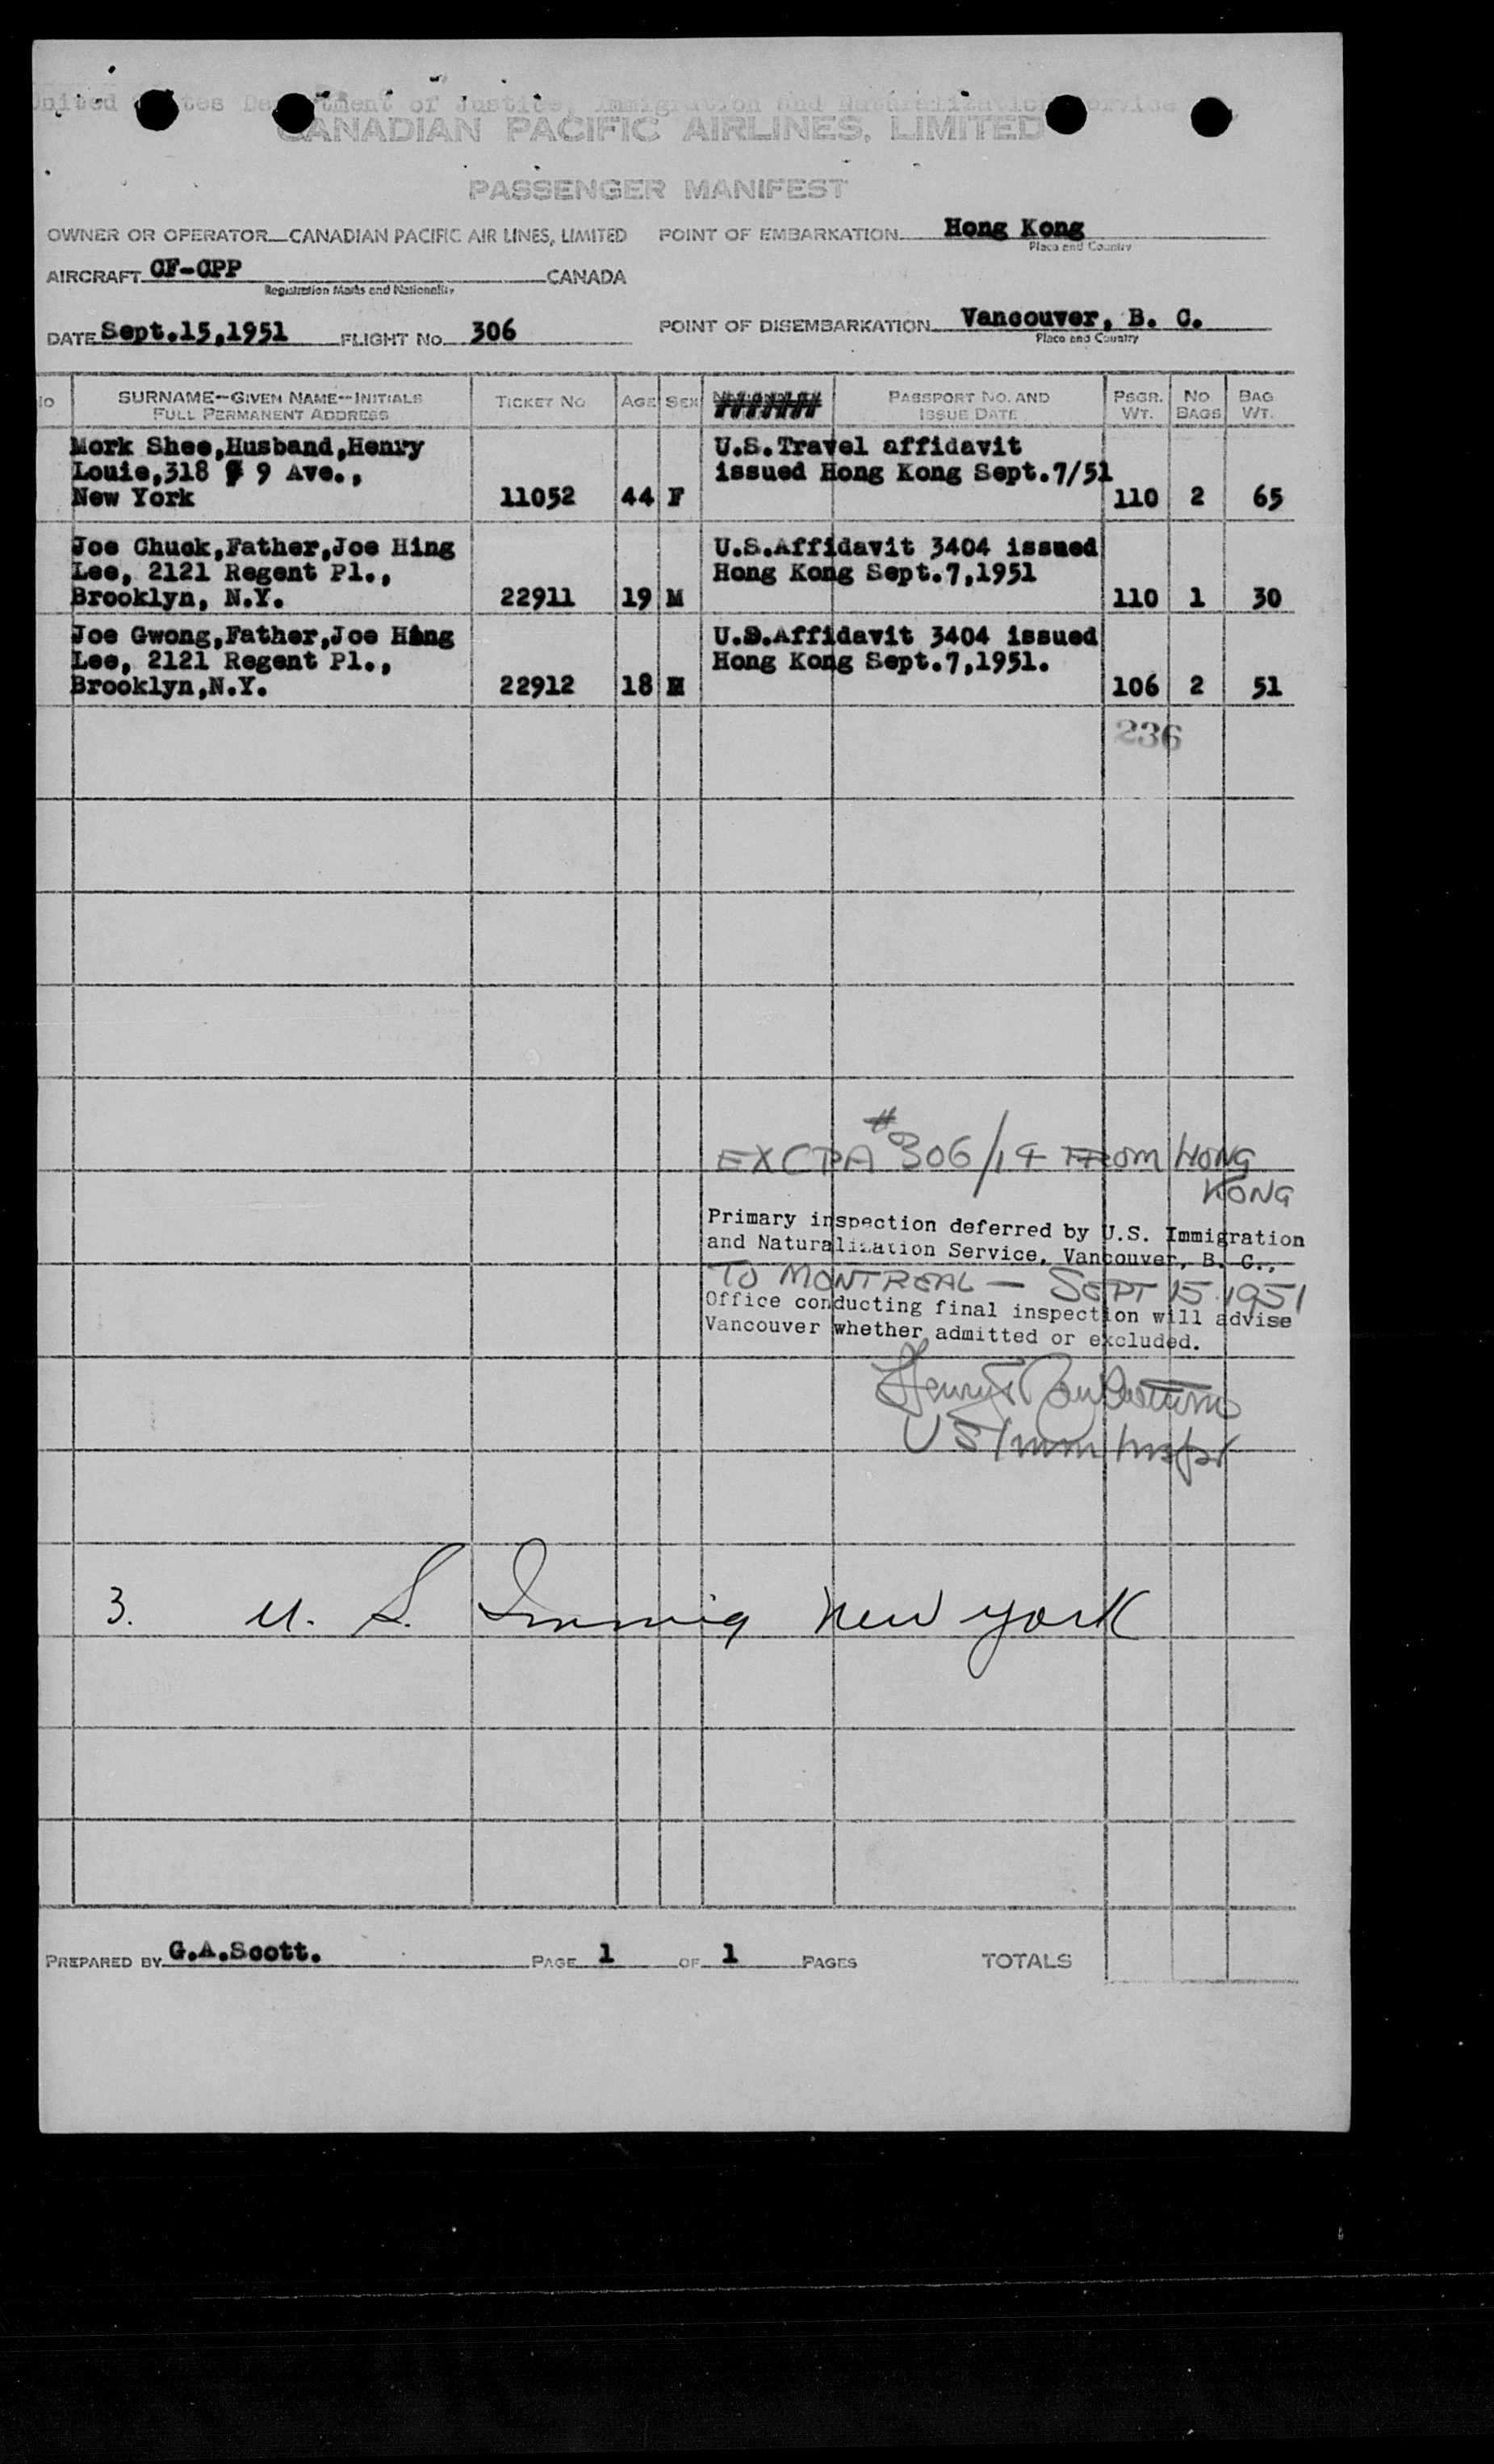 United States Department of Justice, Immigration and Naturalization Service
CANADIAN PACIFIC AIRLINES, LIMITED
PASSENGER MANIFEST
OWNER OR OPERATOR CANADIAN PACIFIC AIR LINES, LIMITED POINT OF EMBARKATION Hong Kong
Place and Country
AIRCRAFT CF-CPP CANADA
Registration Marks and Nationality
DATE Sept.15,1951 FLIGHT No. 306 POINT OF DISEMBARKATION Vancouver, B. C.
Place and Country
No SURNAME--GIVEN NAME--INITIALS TICKET No AGE SEX PASSPORT NO. AND PSGR. NO BAG
FULL PERMANENT ADDRESS ISSUE DATE WT. BAGS WT.
Mork Shee,Husband,Henry U.S.Travel affidavit
Louie,318 9 Ave., issued Hong Kong Sept.7/51
New York 11052 44 F 110 2 65
Joe Chuck,Father,Joe Hing U.S.Affidavit 3404 issued
Lee, 2121 Regent Pl., Hong Kong Sept.7,1951
Brooklyn, N.Y. 22911 19 M 110 1 30
Joe Gwong,Father,Joe Hing U.S.Affidavit 3404 issued
Lee, 2121 Regent Pl., Hong Kong Sept.7,1951.
Brooklyn,N.Y. 22912 18 M 106 2 51
236
EX CPA #306/14 FROM HONG
KONG
Primary inspection deferred by U.S. Immigration
and Naturalization Service, Vancouver, B. C.,
TO MONTREAL — SEPT 15 1951
Office conducting final inspection will advise
Vancouver whether admitted or excluded.
US Imm Inspr
3. U. S. Immig New York
PREPARED BY G.A.Scott. PAGE 1 OF 1 PAGES TOTALS